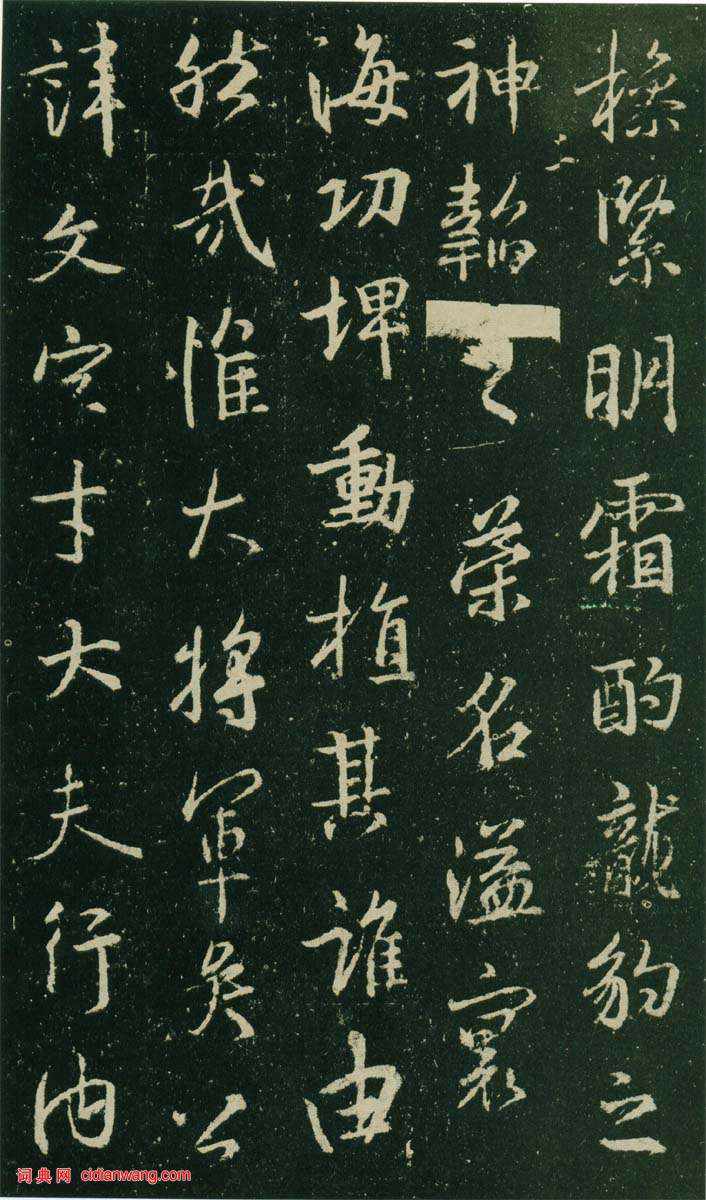 操緊明霜酌龍豹之
神韜之榮名溢寰
海功埤動植其誰由
然哉惟大將軍矣公
諱文字才大夫行内
词典网 cidianwang.com